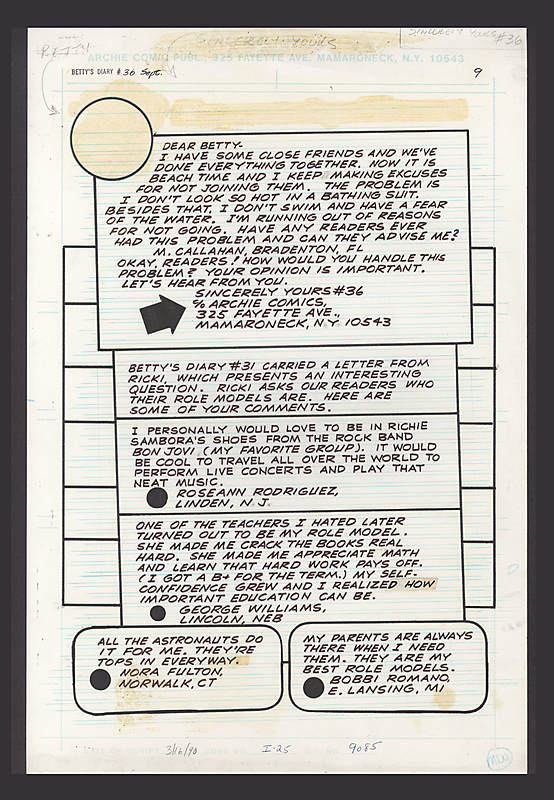 SINCERELY YOURS
SINCERELY YOURS #36
BETTY
ARCHIE COMIC PUBL., 325 FAYETTE AVE. MAMARONECK, N.Y. 10543
BETTY'S DIARY #36 Sept. 9
DEAR BETTY-
I HAVE SOME CLOSE FRIENDS AND WE'VE
DONE EVERYTHING TOGETHER. NOW IT IS
BEACH TIME AND I KEEP MAKING EXCUSES
FOR NOT JOINING THEM. THE PROBLEM IS
I DON'T LOOK SO HOT IN A BATHING SUIT.
BESIDES THAT, I DON'T SWIM AND HAVE A FEAR
OF THE WATER. I'M RUNNING OUT OF REASONS
FOR NOT GOING. HAVE ANY READERS EVER
HAD THIS PROBLEM AND CAN THEY ADVISE ME?
M. CALLAHAN, BRADENTON, FL
OKAY, READERS! HOW WOULD YOU HANDLE THIS
PROBLEM? YOUR OPINION IS IMPORTANT.
LET'S HEAR FROM YOU.
SINCERELY YOURS #36
℅ ARCHIE COMICS,
325 FAYETTE AVE.,
MAMARONECK, N.Y. 10543
BETTY'S DIARY #31 CARRIED A LETTER FROM
RICKI, WHICH PRESENTS AN INTERESTING
QUESTION. RICKI ASKS OUR READERS WHO
THEIR ROLE MODELS ARE. HERE ARE
SOME OF YOUR COMMENTS.
I PERSONALLY WOULD LOVE TO BE IN RICHIE
SAMBORA'S SHOES FROM THE ROCK BAND
BON JOVI. (MY FAVORITE GROUP). IT WOULD
BE COOL TO TRAVEL ALL OVER THE WORLD TO
PERFORM LIVE CONCERTS AND PLAY THAT
NEAT MUSIC.
ROSEANN RODRIGUEZ,
LINDEN, N.J.
ONE OF THE TEACHERS I HATED LATER
TURNED OUT TO BE MY ROLE MODEL.
SHE MADE ME CRACK THE BOOKS REAL
HARD. SHE MADE ME APPRECIATE MATH
AND LEARN THAT HARD WORK PAYS OFF.
(I GOT A B+ FOR THE TERM.) MY SELF-
CONFIDENCE GREW AND I REALIZED HOW
IMPORTANT EDUCATION CAN BE.
GEORGE WILLIAMS,
LINCOLN, NEB
ALL THE ASTRONAUTS DO
IT FOR ME. THEY'RE
TOPS IN EVERYWAY.
NORA FULTON,
NORWALK, CT
MY PARENTS ARE ALWAYS
THERE WHEN I NEED
THEM. THEY ARE MY
BEST ROLE MODELS.
BOBBI ROMANO,
E. LANSING, MI
3/16/90 I-25 9085